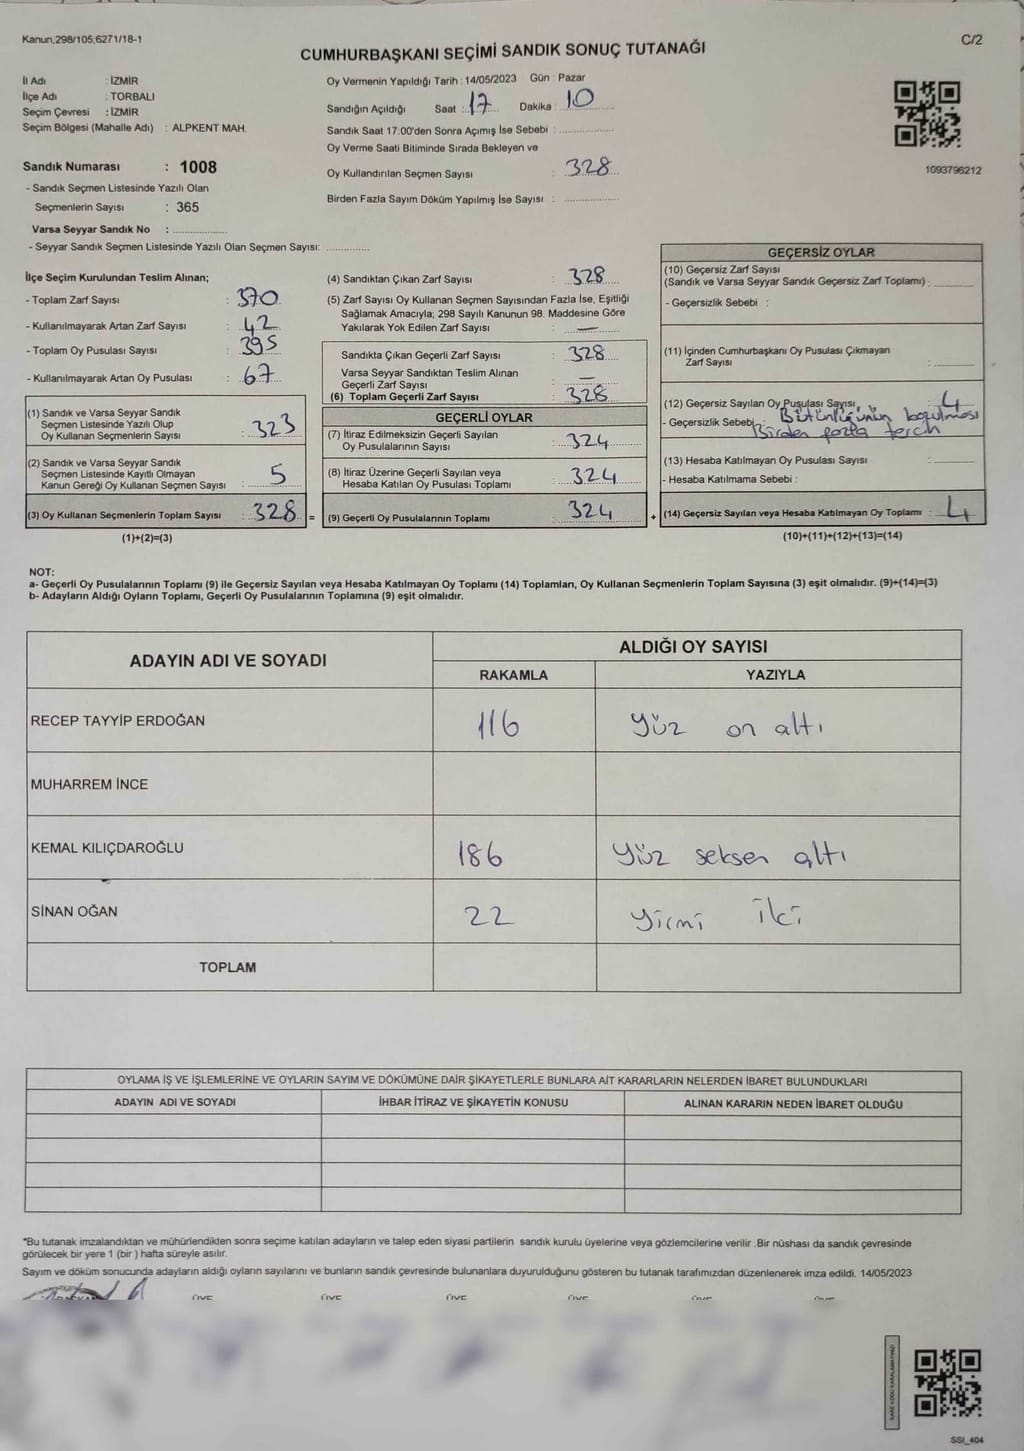 Kanun;298/105;6271/18-1
C/2
CUMHURBAŞKANI SEÇİMİ SANDIK SONUÇ TUTANAĞI
İl Adı : İZMİR
İlçe Adı : TORBALI
Seçim Çevresi : İZMİR
Seçim Bölgesi (Mahalle Adı) : ALPKENT MAH.
Sandık Numarası : 1008
- Sandık Seçmen Listesinde Yazılı Olan
Seçmenlerin Sayısı : 365
Varsa Seyyar Sandık No : ..................
- Seyyar Sandık Seçmen Listesinde Yazılı Olan Seçmen Sayısı: ..............
Oy Vermenin Yapıldığı Tarih : 14/05/2023 Gün : Pazar
Sandığın Açıldığı Saat : 17 Dakika : 10
Sandık Saat 17:00'den Sonra Açımış İse Sebebi : ..................
Oy Verme Saati Bitiminde Sırada Bekleyen ve
Oy Kullandırılan Seçmen Sayısı : 328
Birden Fazla Sayım Döküm Yapılmış İse Sayısı : ..................
1093796212
İlçe Seçim Kurulundan Teslim Alınan;
- Toplam Zarf Sayısı : 370
- Kullanılmayarak Artan Zarf Sayısı : 42
- Toplam Oy Pusulası Sayısı : 395
- Kullanılmayarak Artan Oy Pusulası : 67
(1) Sandık ve Varsa Seyyar Sandık
Seçmen Listesinde Yazılı Olup
Oy Kullanan Seçmenlerin Sayısı : 323
(2) Sandık ve Varsa Seyyar Sandık
Seçmen Listesinde Kayıtlı Olmayan
Kanun Gereği Oy Kullanan Seçmen Sayısı : 5
(3) Oy Kullanan Seçmenlerin Toplam Sayısı : 328 =
(1)+(2)=(3)
(4) Sandıktan Çıkan Zarf Sayısı : 328
(5) Zarf Sayısı Oy Kullanan Seçmen Sayısından Fazla İse, Eşitliği
Sağlamak Amacıyla; 298 Sayılı Kanunun 98. Maddesine Göre
Yakılarak Yok Edilen Zarf Sayısı : —
Sandıkta Çıkan Geçerli Zarf Sayısı : 328
Varsa Seyyar Sandıktan Teslim Alınan
Geçerli Zarf Sayısı : —
(6) Toplam Geçerli Zarf Sayısı : 328
GEÇERLİ OYLAR
(7) İtiraz Edilmeksizin Geçerli Sayılan
Oy Pusulalarının Sayısı : 324
(8) İtiraz Üzerine Geçerli Sayılan veya
Hesaba Katılan Oy Pusulası Toplamı : 324
(9) Geçerli Oy Pusulalarının Toplamı : 324 +
GEÇERSİZ OYLAR
(10) Geçersiz Zarf Sayısı
(Sandık ve Varsa Seyyar Sandık Geçersiz Zarf Toplamı) : ............
- Geçersizlik Sebebi :
(11) İçinden Cumhurbaşkanı Oy Pusulası Çıkmayan
Zarf Sayısı : ............
(12) Geçersiz Sayılan Oy Pusulası Sayısı : 4
- Geçersizlik Sebebi : Bütünlüğünün bozulması
Birden fazla tercih
(13) Hesaba Katılmayan Oy Pusulası Sayısı : ............
- Hesaba Katılmama Sebebi :
(14) Geçersiz Sayılan veya Hesaba Katılmayan Oy Toplamı : 4
(10)+(11)+(12)+(13)=(14)
NOT:
a- Geçerli Oy Pusulalarının Toplamı (9) ile Geçersiz Sayılan veya Hesaba Katılmayan Oy Toplamı (14) Toplamları, Oy Kullanan Seçmenlerin Toplam Sayısına (3) eşit olmalıdır. (9)+(14)=(3)
b- Adayların Aldığı Oyların Toplamı, Geçerli Oy Pusulalarının Toplamına (9) eşit olmalıdır.
ADAYIN ADI VE SOYADI
ALDIĞI OY SAYISI
RAKAMLA YAZIYLA
RECEP TAYYİP ERDOĞAN 116 Yüz on altı
MUHARREM İNCE
KEMAL KILIÇDAROĞLU 186 Yüz seksen altı
SİNAN OĞAN 22 Yirmi İki
TOPLAM
OYLAMA İŞ VE İŞLEMLERİNE VE OYLARIN SAYIM VE DÖKÜMÜNE DAİR ŞİKAYETLERLE BUNLARA AİT KARARLARIN NELERDEN İBARET BULUNDUKLARI
ADAYIN ADI VE SOYADI İHBAR İTİRAZ VE ŞİKAYETİN KONUSU ALINAN KARARIN NEDEN İBARET OLDUĞU
*Bu tutanak imzalandıktan ve mühürlendikten sonra seçime katılan adayların ve talep eden siyasi partilerin sandık kurulu üyelerine veya gözlemcilerine verilir .Bir nüshası da sandık çevresinde
görülecek bir yere 1 (bir ) hafta süreyle asılır.
Sayım ve döküm sonucunda adayların aldığı oyların sayılarını ve bunların sandık çevresinde bulunanlara duyurulduğunu gösteren bu tutanak tarafımızdan düzenlenerek imza edildi. 14/05/2023
ÜYE ÜYE ÜYE ÜYE
KARE KODU KARALAMAYINIZ!
SSI_404